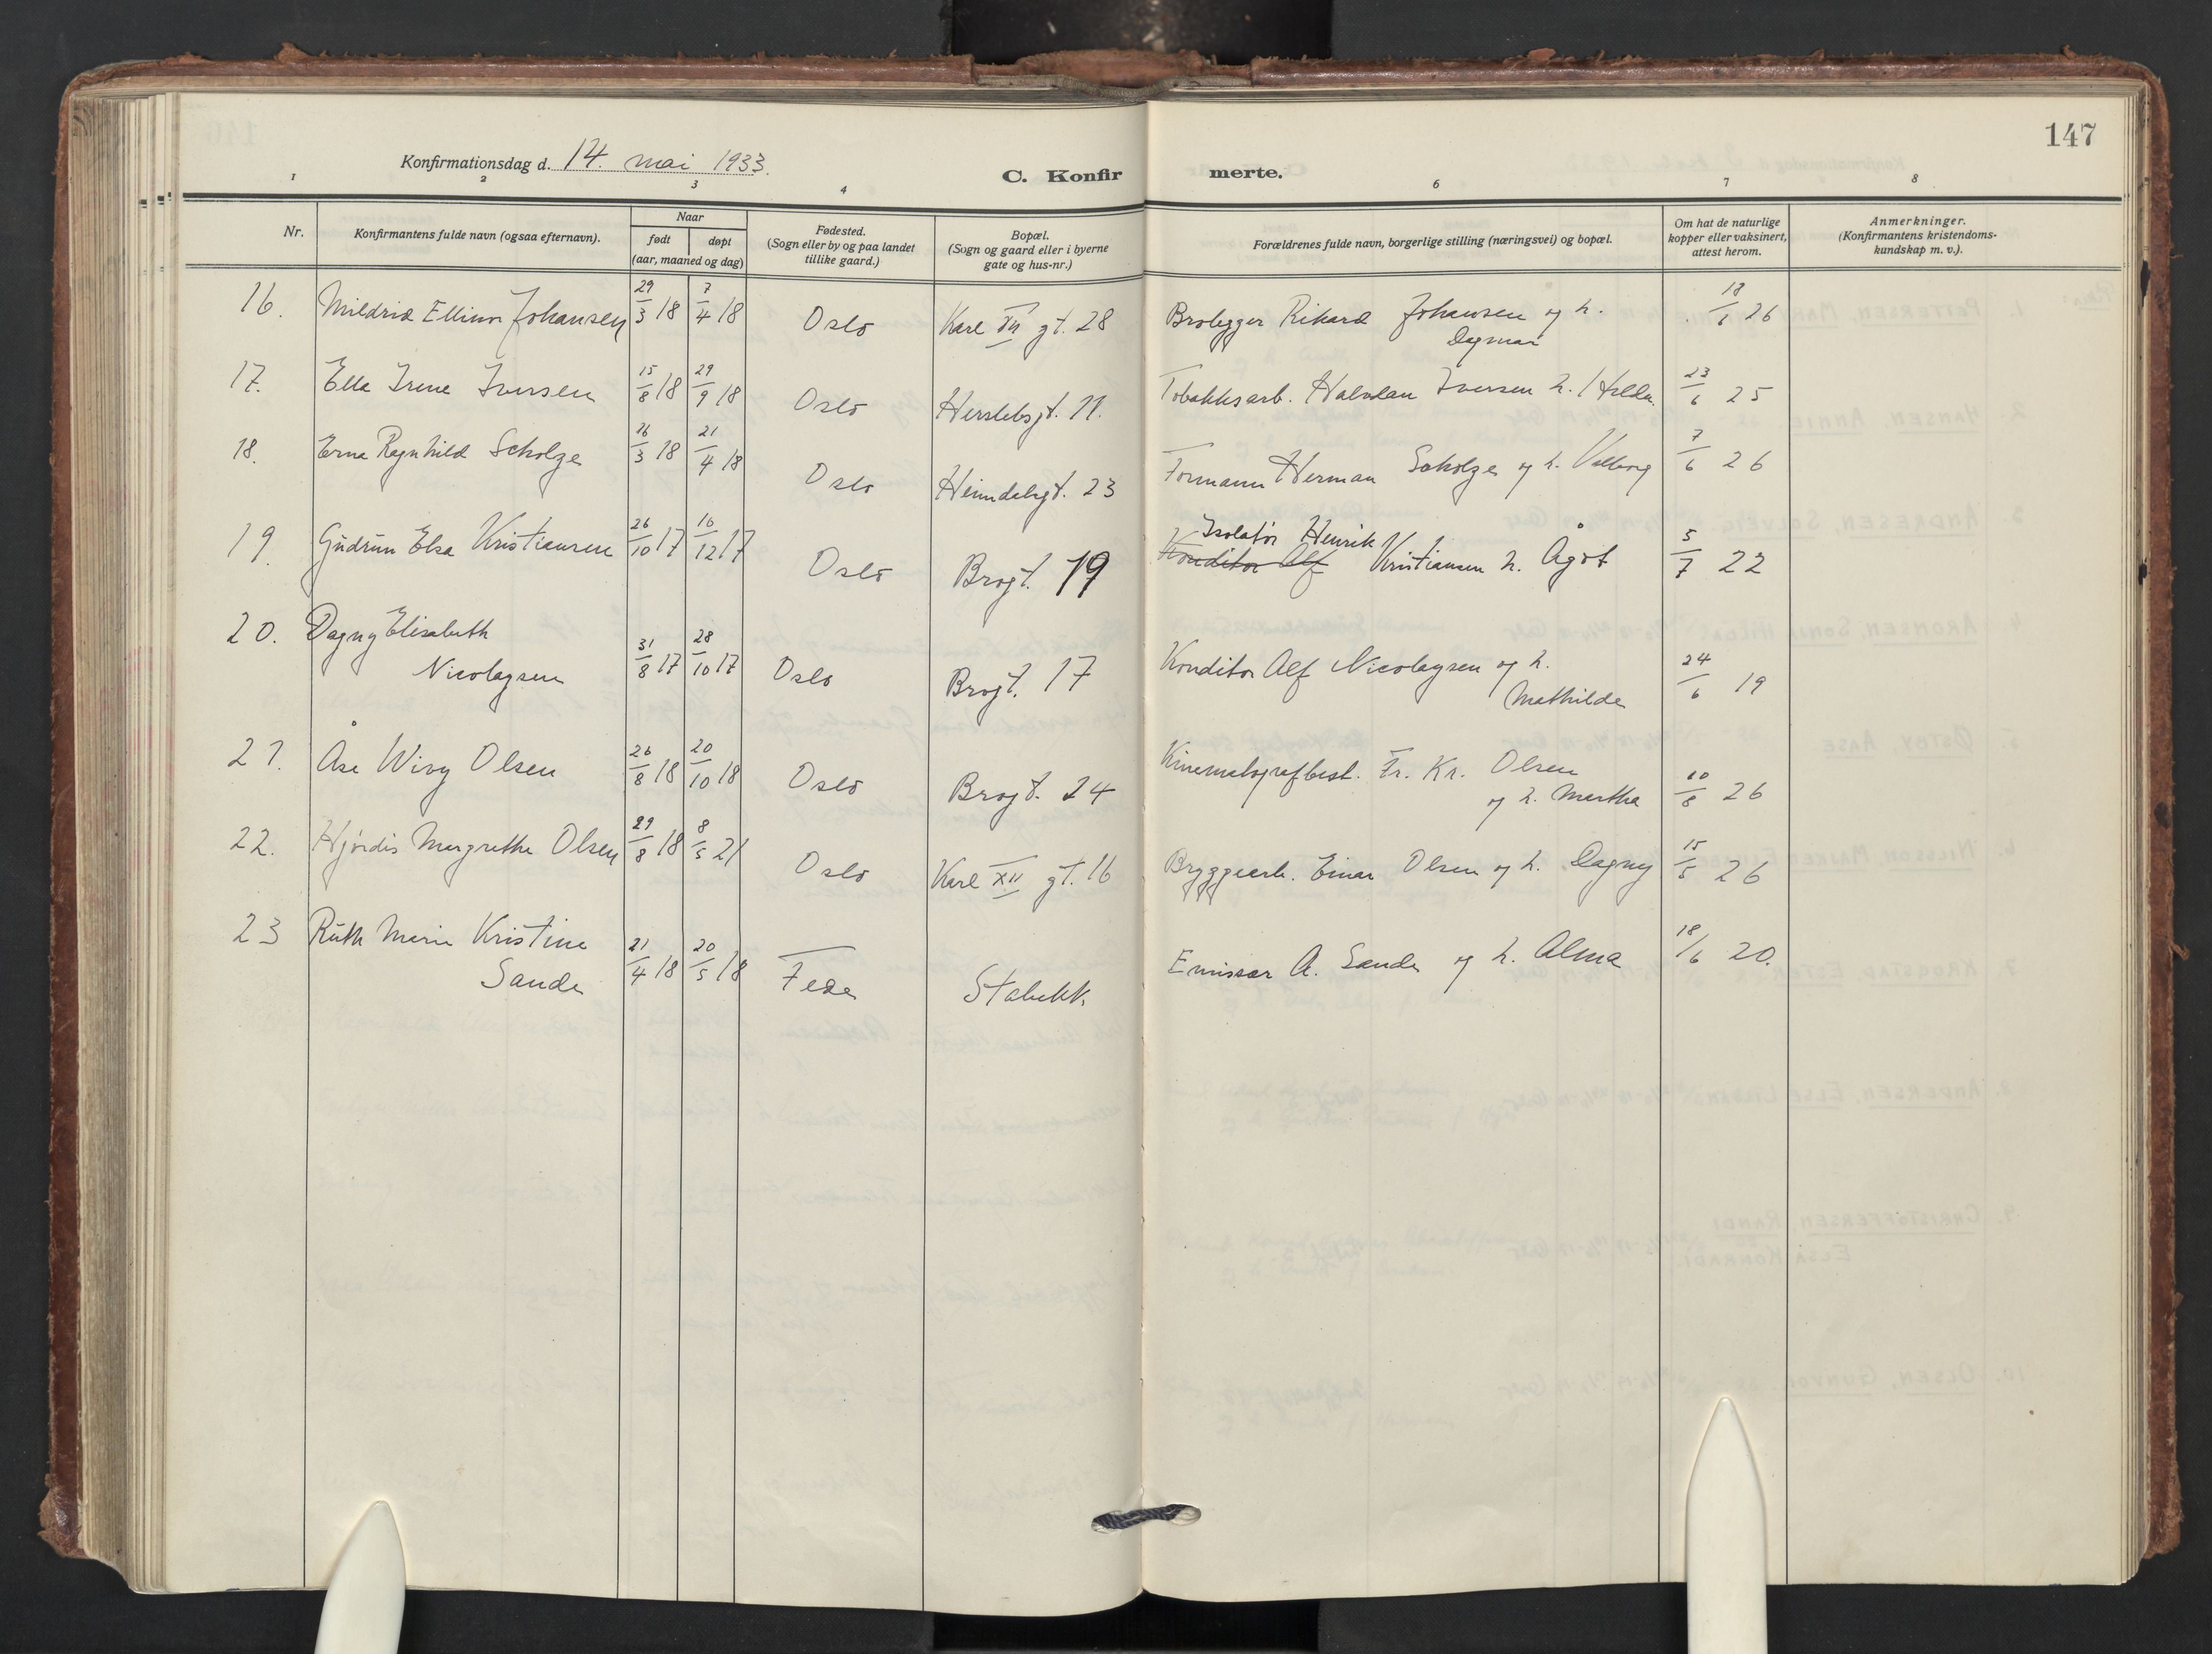 147
Konfirmationsdag d. 14. mai 1933.
C. Konfirmerte.
1 2 3 4 6 7 8
Nr. Konfirmantens fulde navn (ogsaa efternavn). Naar født døpt (aar, maaned og dag) Fødested. (Sogn eller by og paa landet tillike gaard.) Bopæl. (Sogn og gaard eller i byerne gate og hus-nr.) Forældrenes fulde navn, borgerlige stilling (næringsvei) og bopæl. Om hat de naturlige kopper eller vaksinert, attest herom. Anmerkninger. (Konfirmantens kristendoms-kundskap m. v.).
16. Mildrid Ellinor Johansen 29/3 18 7/4 18 Oslo Karl XII gt. 28 Brolegger Rikard Johansen og h. Dagmar 26
17. Ella Irene Iversen 15/8 18 29/9 18 Oslo Herslebsgt. 11. Tobakksarb. Halvdan Iversen h. Hilda 23/6 25
18. Erna Ragnhild Scholze 16/3 18 21/4 18 Oslo Heimdalsgt. 23 Formann Herman Scholze og h. Valborg 7/6 26
19. Gudrun Elsa Kristiansen 26/10 17 16/12 17 Oslo Brogt. 19 Isolatør Henrik Konditor Alf Kristiansen h. Ågot 5/7 22
20. Dagny Elisabeth
Nicolaysen 31/8 17 28/10 17 Oslo Brogt. 17 Konditor Alf Nicolaysen og h. Mathilde 24/6 19
21. Åse Wivy Olsen 26/8 18 20/10 18 Oslo Brogt. 24 Kinematografbest. Fr. Kr. Olsen og h. Martha 10/8 26
22. Hjördis Margrethe Olsen 29/8 18 8/5 21 Oslo Karl XII gt. 16 Bryggearb. Einar Olsen og h. Dagny 15/5 26
23 Ruth Marie Kristine
Sande 21/4 18 20/5 18 Feda Stabekk. Emissær A. Sande og h. Alma 18/6 20.